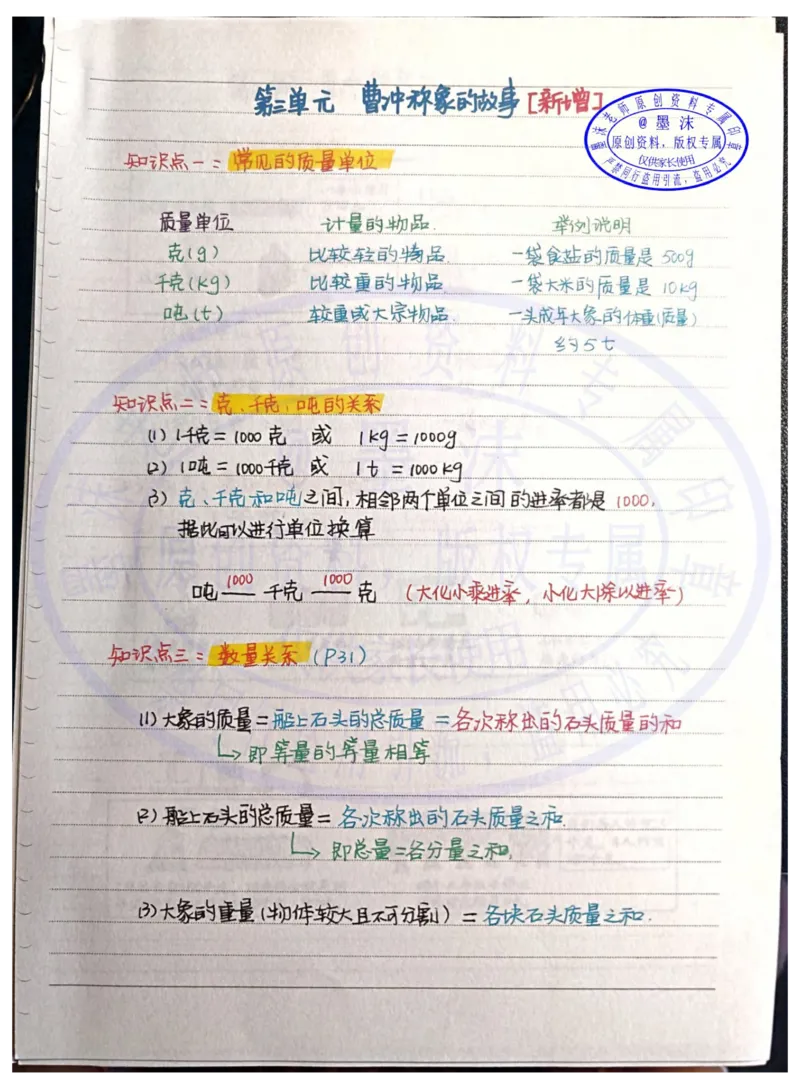 第三单元 曹冲称象的故事[新增]
墨沫老师原创资料专属印章
@墨沫
原创资料，版权专属
仅供家长使用
严禁同行盗用引流，盗用必究
知识点一：常见的质量单位
质量单位 计量的物品. 举例说明
克(g) 比较轻的物品. 一袋食盐的质量是 500g
千克(kg) 比较重的物品. 一袋大米的质量是 10kg
吨(t) 较重或大宗物品. 一头成年大象的体重(质量)
约5t
知识点二：克、千克、吨的关系
(1) 1千克=1000克 或 1kg=1000g
(2) 1吨=1000千克 或 1t=1000kg
(3) 克、千克和吨之间,相邻两个单位之间的进率都是1000,
据此可以进行单位换算
1000 1000
吨 —— 千克 —— 克 (大化小乘进率,小化大除以进率)
知识点三：数量关系 (P31)
(1)大象的质量=船上石头的总质量=各次称出的石头质量的和
↳即等量的等量相等
(2)船上石头的总质量=各次称出的石头质量之和.
↳即总量=各分量之和.
(3)大象的重量(物体较大且不可分割)=各块石头质量之和.